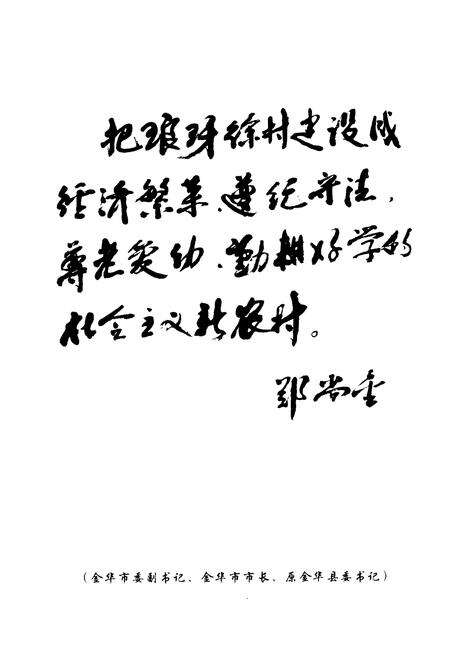 把琅玡徐村建设成
经济繁荣、遵纪守法，
尊老爱幼、勤耕好学的
社会主义新农村。
郑尚金
（金华市委副书记、金华市市长、原金华县委书记）